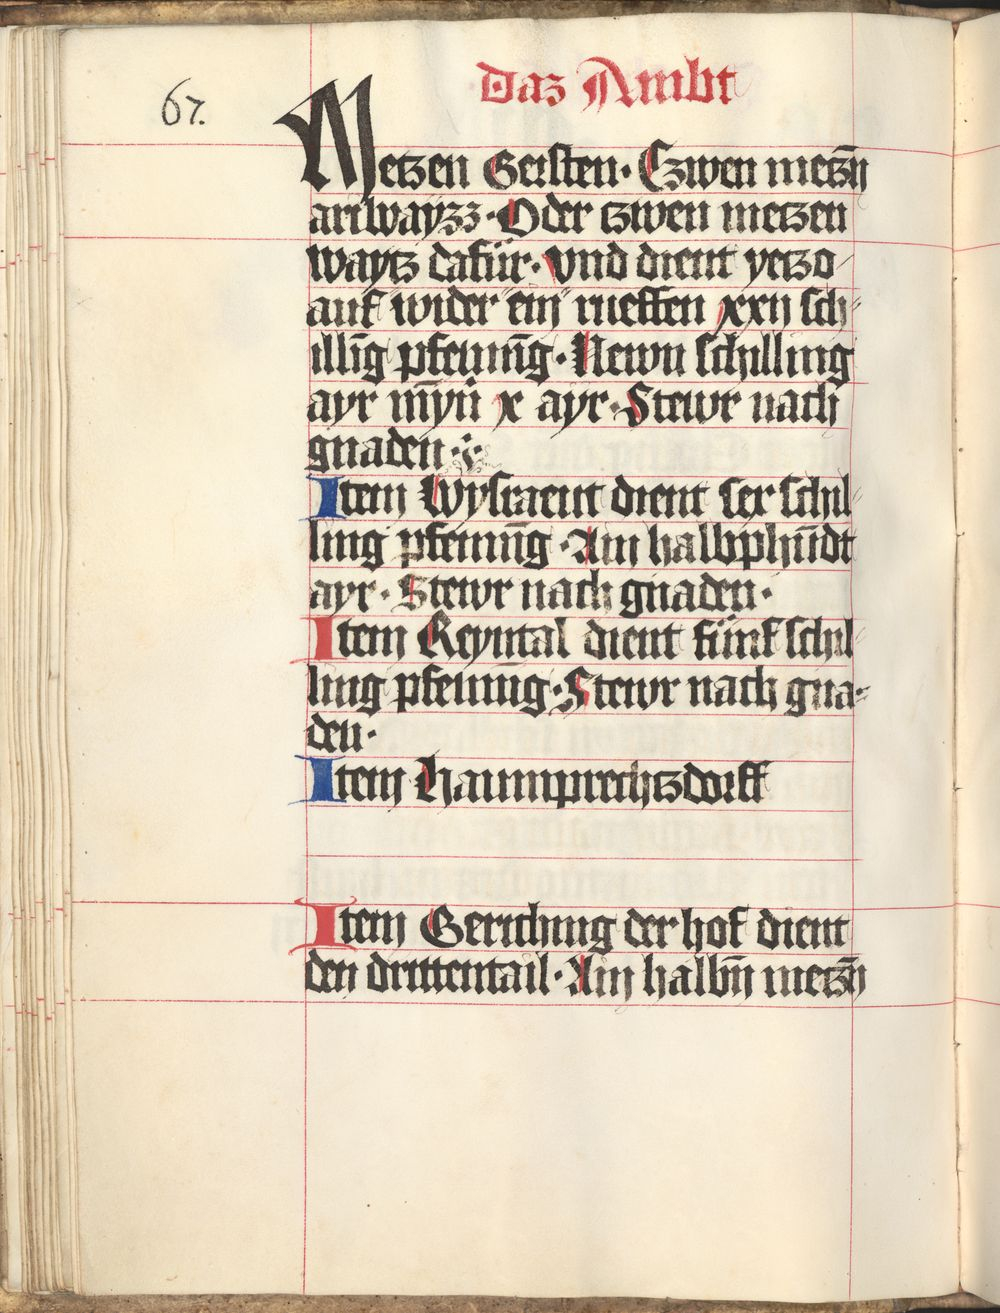 67.
Daz Ambt
Metzen Gersten · Czwen metzn̄
arilwayzz · Oder tzwen metzen
waytz dafür · vnd dient yetzo
auf wider ein rueffen xxij sch⸗
illīg pfenīng · Newn schilling
ayr myn̄ x ayr · Stewr nach
gnaden ·
Item Wysraent dient sex schil⸗
ling pfenīng · Ain halbphūdt
ayr · Stewr nach gnaden ·
Item Reyntal dient fünf schil
ling pfenīng · Stewr nach gna⸗
den ·
Item Haumprechtzdorff
Item Gerithing der hof dient
den drittentail · Ain halbn̄ metzn̄